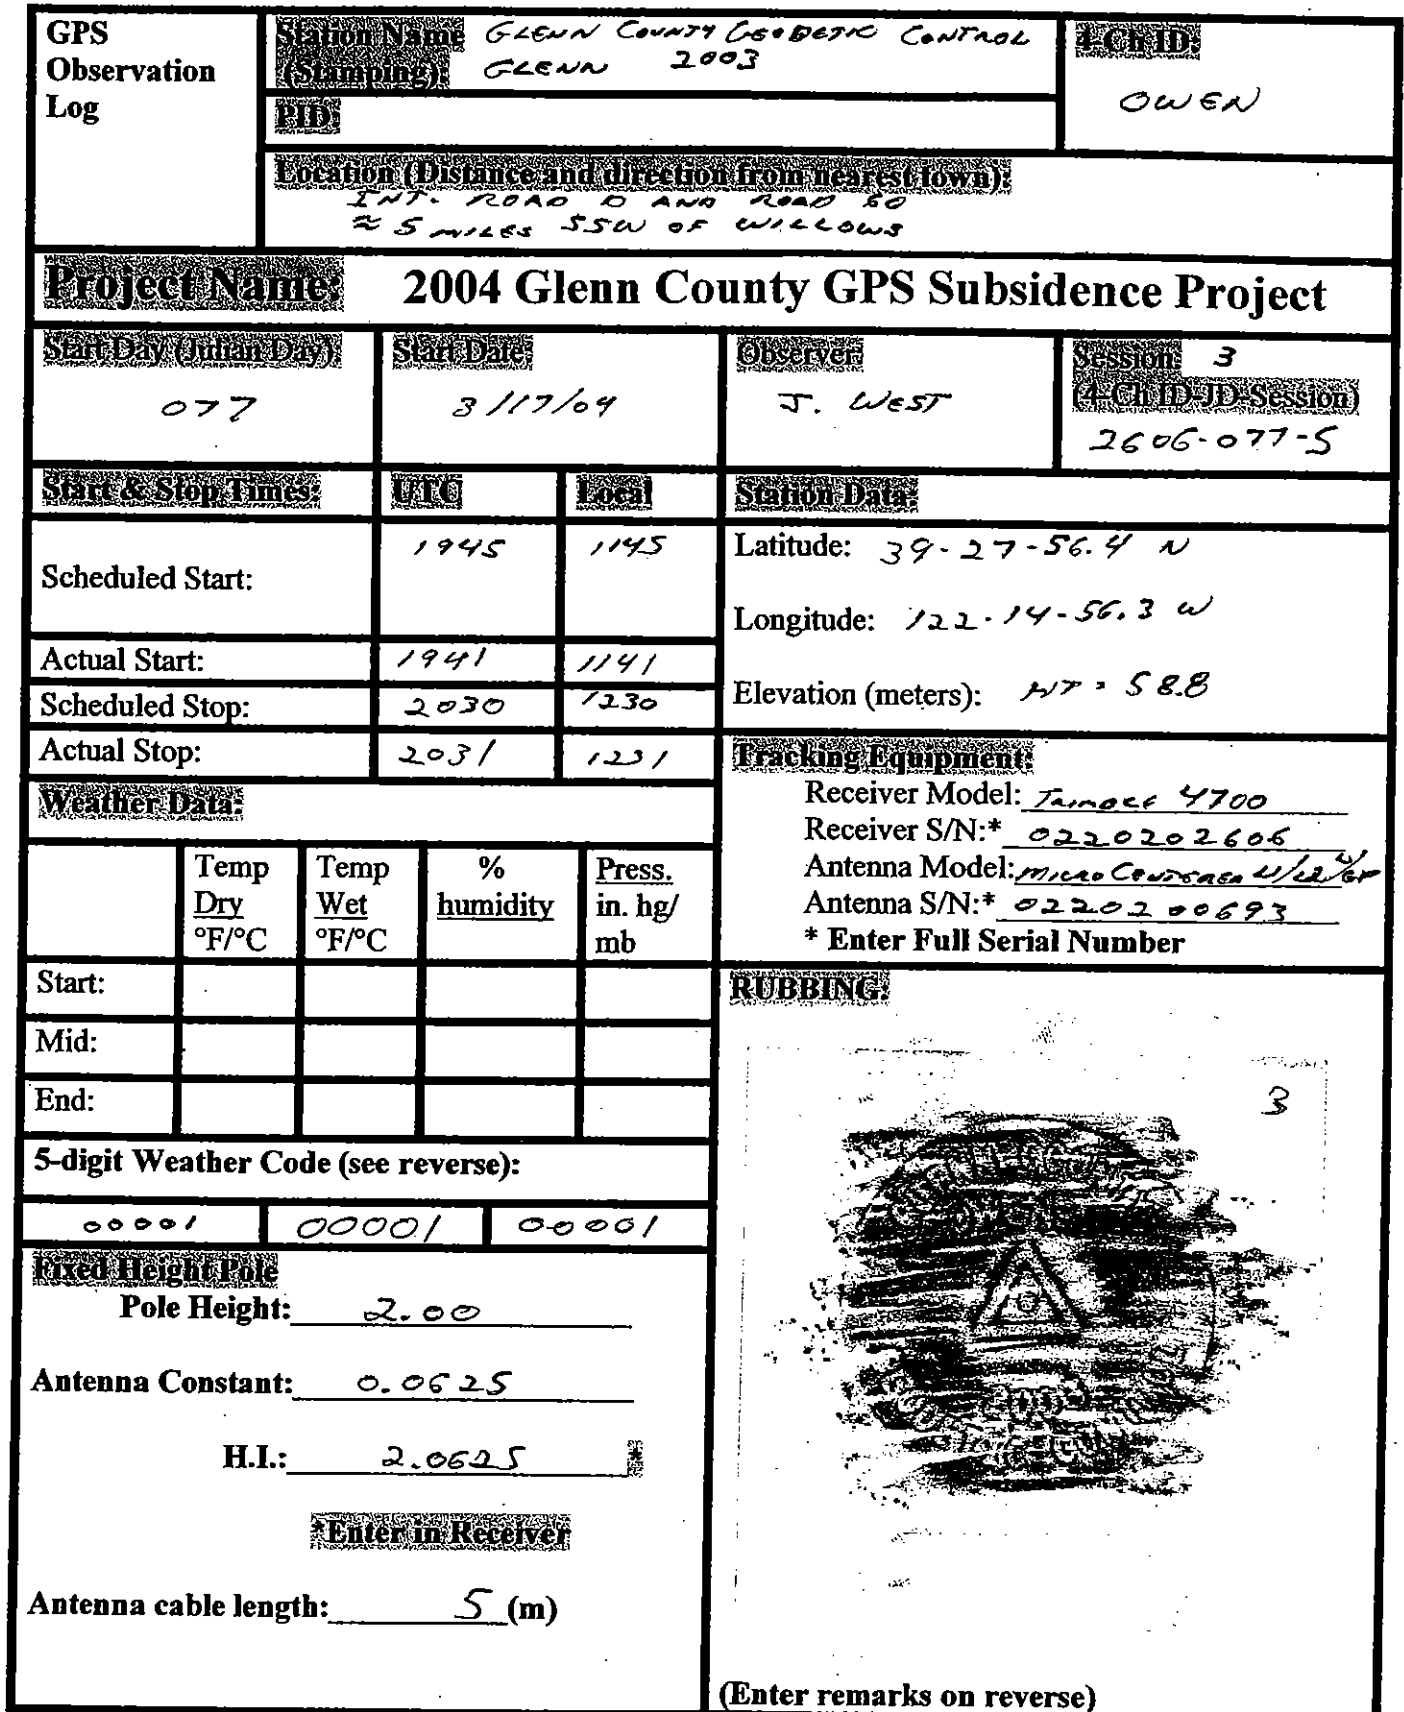 GPS
Observation
Log
Station Name GLENN COUNTY GEODETIC CONTROL
(Stamping): GLENN 2003
4-Ch ID:
OWEN
PID:
Location (Distance and direction from nearest town):
INT. ROAD D AND ROAD 60
≈ 5 MILES SSW OF WILLOWS
Project Name: 2004 Glenn County GPS Subsidence Project
Start Day (Julian Day)
077
Start Date:
3/17/04
Observer:
J. WEST
Session: 3
(4-Ch ID-JD-Session)
2606-077-5
Start & Stop Times: UTC Local
Scheduled Start: 1945 1145
Actual Start: 1941 1141
Scheduled Stop: 2030 1230
Actual Stop: 2031 1231
Station Data:
Latitude: 39-27-56.4 N
Longitude: 122-14-56.3 W
Elevation (meters): HT = 58.8
Tracking Equipment:
Receiver Model: TRIMBLE 4700
Receiver S/N:* 0220202606
Antenna Model: MICRO CENTERED
Antenna S/N:* 0220200693
* Enter Full Serial Number
Weather Data:
Temp
Dry
°F/°C
Temp
Wet
°F/°C
%
humidity
Press.
in. hg/
mb
Start:
Mid:
End:
5-digit Weather Code (see reverse):
00001 00001 00001
Fixed Height Pole
Pole Height: 2.00
Antenna Constant: 0.0625
H.I.: 2.0625 *
*Enter in Receiver
Antenna cable length: 5 (m)
RUBBING:
3
(Enter remarks on reverse)